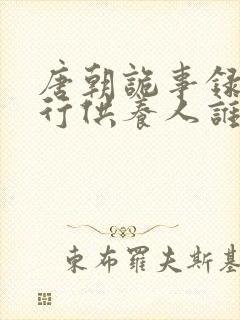 唐朝詭事錄
行供養人誰
東布羅夫斯基